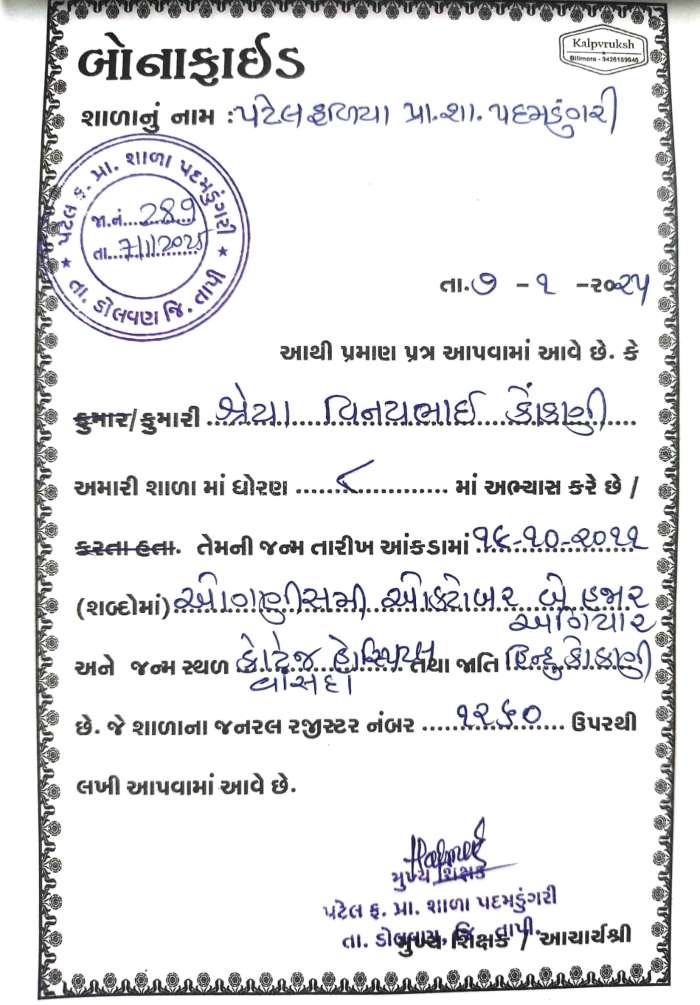 બોનાફાઈડ
Kalpvruksh
Bilimora - 9426189946
શાળાનું નામ : પટેલ ફળિયા પ્રા. શા. પદમડુંગરી
પટેલ ફ. પ્રા. શાળા પદમડુંગરી
જા.નં. 289
તા. 7/1/2025
તા. ડોલવણ જિ. તાપી
તા. ૭ - ૧ - ૨૦૨૫
આથી પ્રમાણ પત્ર આપવામાં આવે છે. કે
કુમાર/કુમારી શ્રેયા વિનયભાઈ કોંકાણી
અમારી શાળા માં ધોરણ ૮ માં અભ્યાસ કરે છે /
કરતા હતા. તેમની જન્મ તારીખ આંકડામાં ૧૯-૧૦-૨૦૧૧
(શબ્દોમાં) ઓગણીસમી ઓક્ટોબર બે હજાર
અગિયાર
અને જન્મ સ્થળ કોટેજ હોસ્પિટલ તથા જાતિ હિન્દુ કોકાણી
વાંસદા
છે. જે શાળાના જનરલ રજીસ્ટર નંબર ૧૨૬૦ ઉપરથી
લખી આપવામાં આવે છે.
મુખ્ય શિક્ષક
પટેલ ફ. પ્રા. શાળા પદમડુંગરી
તા. ડોલવણ, જિ. તાપી.
મુખ્ય શિક્ષક / આચાર્યશ્રી